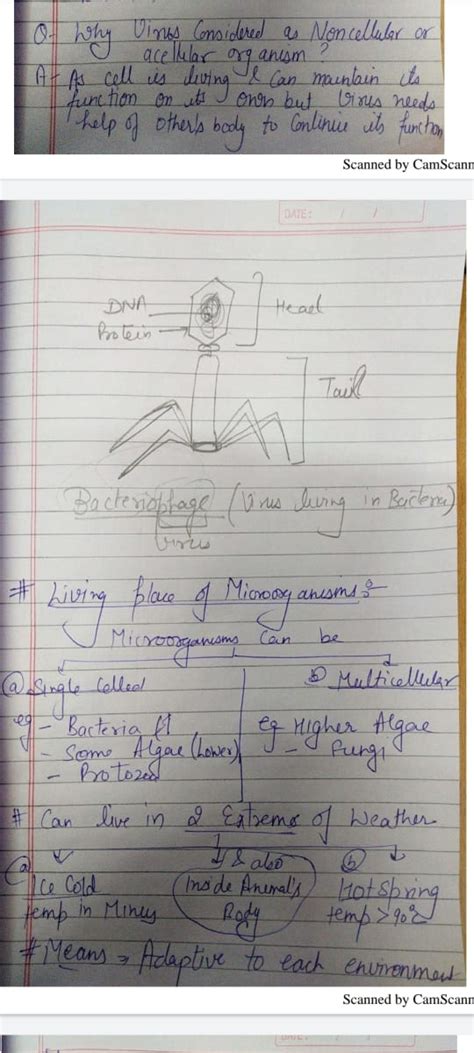 Q- Why Virus Considered as Noncellular or
acellular organism ?
A- As cell is living & can maintain its
function on its own but Virus needs
help of other's body to continue its function
Scanned by CamScann
DATE: / /
DNA
Protein
Head
Tail
Bacteriophage (Virus living in Bacteria)
Virus
# Living place of Microorganisms :-
Microorganisms Can be
(a) Single Celled
eg - Bacteria
- Some Algae (Lower)
- Protozoa
(b) Multicellular
Eg Higher Algae
- Fungi
# Can live in 2 Extreme of Weather
& also
(a)
Ice Cold
temp in Minus
Inside Animal's
Body
(b)
Hot Spring
temp > 90°C
# Means → Adaptive to each environment
Scanned by CamScann